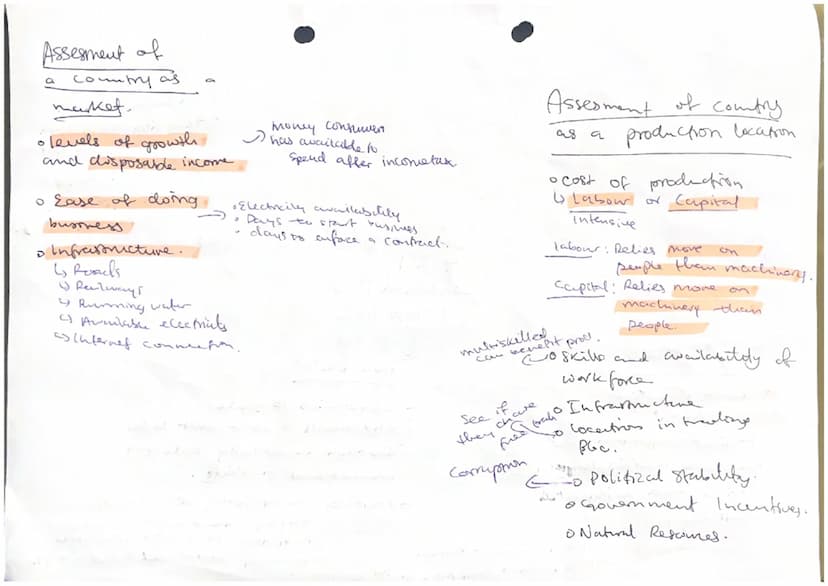 Assesment of
a country as a
market.
o levels of growth
and disposable income
→ money consumer
has available to
spend after income tax
o Ease of doing
business
→ • Electricity availability
• Days to start business
• days to enforce a contract.
o Infrastructure.
↳ Roads
↳ Railways
↳ Running water
↳ Available electricity
↳ Internet connection.
Assesment of country
as a production location
o cost of production
↳ Labour or Capital
intensive
labour: Relies more on
people than machinery.
Capital: Relies more on
machinery than
people.
multiskilled
can benefit prod.
o Skills and availability of
workforce
o Infrastructure
see if
they have
free trade
o location in trading
bloc.
Corruption
o Political Stability.
o Government Incentives.
o Natural Resources.